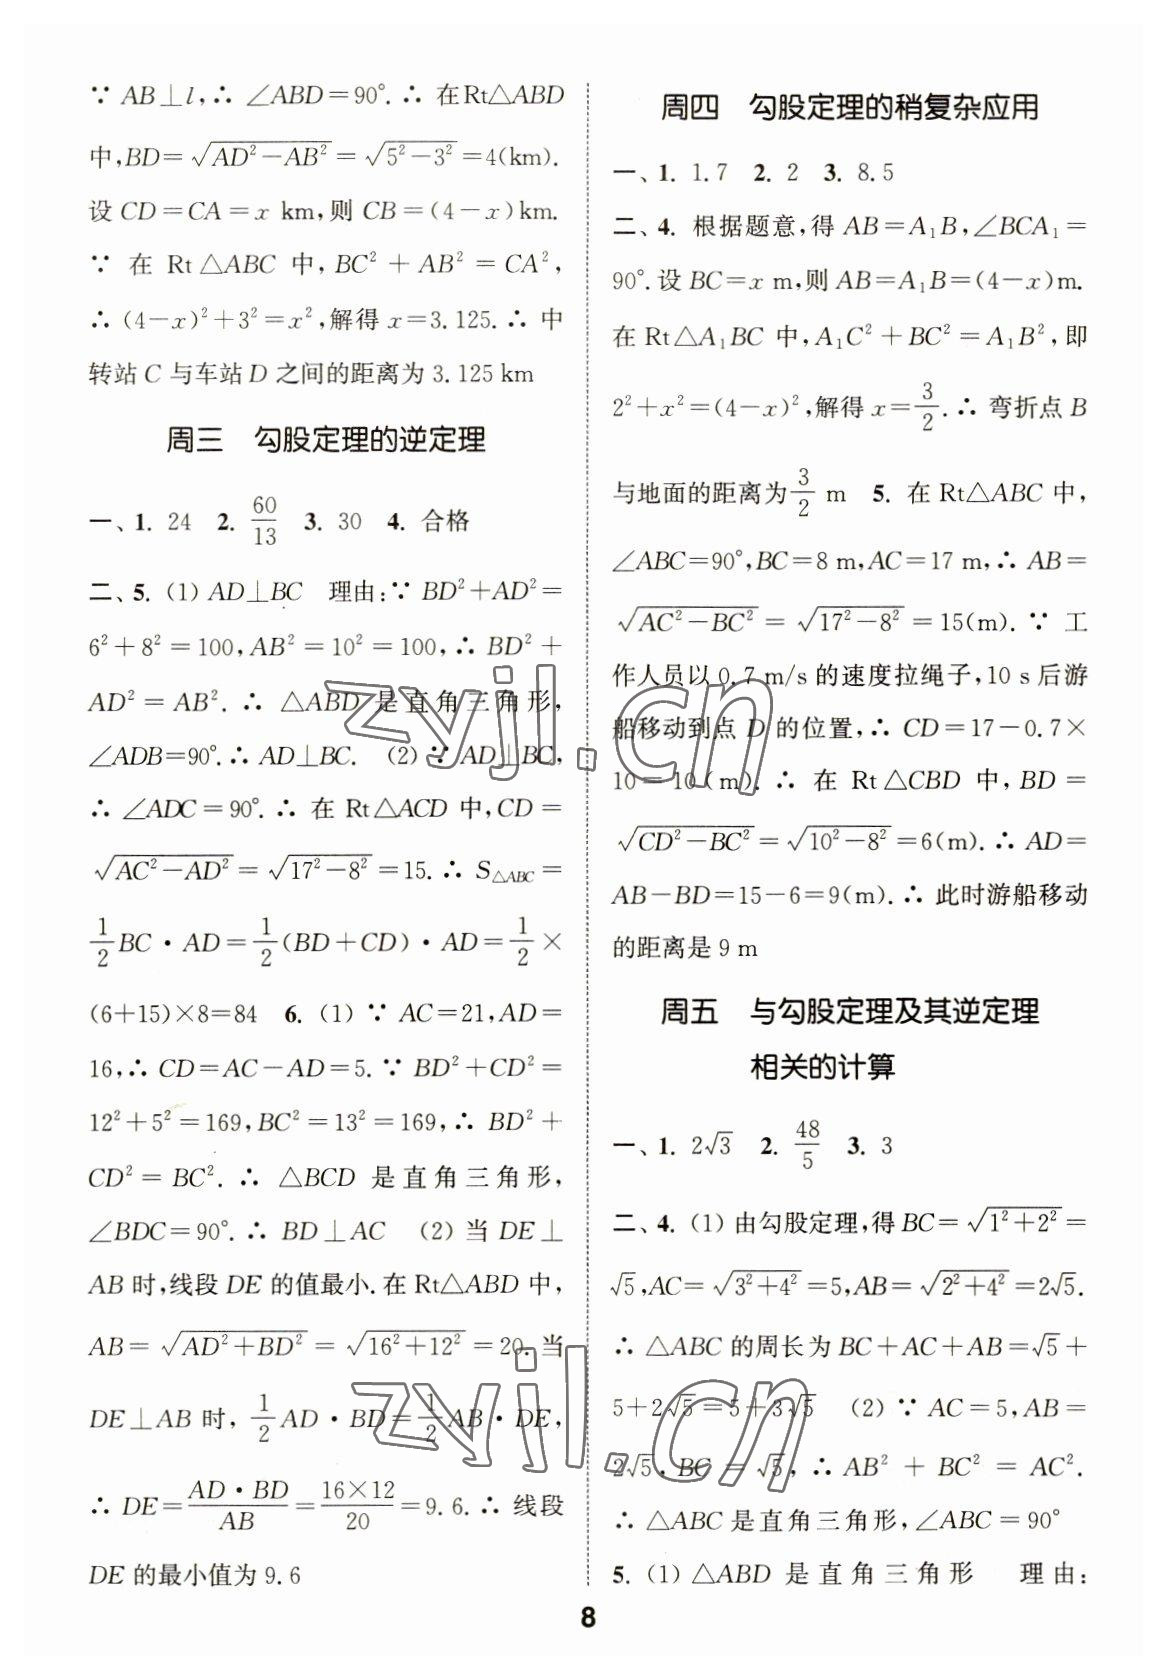 ∵ AB⊥l,∴ ∠ABD=90°.∴ 在Rt△ABD
中,BD=√(AD²-AB²)=√(5²-3²)=4(km).
设 CD=CA=x km,则 CB=(4-x)km.
∵ 在 Rt△ABC 中,BC²+AB²=CA²,
∴ (4-x)²+3²=x²,解得 x=3.125.∴ 中
转站 C 与车站 D 之间的距离为 3.125 km
周三 勾股定理的逆定理
一、1. 24 2. 60/13 3. 30 4. 合格
二、5. (1) AD⊥BC 理由:∵ BD²+AD²=
6²+8²=100,AB²=10²=100,∴ BD²+
AD²=AB².∴ △ABD 是直角三角形,
∠ADB=90°.∴ AD⊥BC. (2) ∵ AD⊥BC,
∴ ∠ADC=90°.∴ 在 Rt△ACD 中,CD=
√(AC²-AD²)=√(17²-8²)=15.∴ S△ABC=
1/2 BC·AD=1/2(BD+CD)·AD=1/2×
(6+15)×8=84 6. (1) ∵ AC=21,AD=
16,∴ CD=AC-AD=5.∵ BD²+CD²=
12²+5²=169,BC²=13²=169,∴ BD²+
CD²=BC².∴ △BCD 是直角三角形,
∠BDC=90°.∴ BD⊥AC (2) 当 DE⊥
AB 时,线段 DE 的值最小.在Rt△ABD 中,
AB=√(AD²+BD²)=√(16²+12²)=20.当
DE⊥AB 时,1/2 AD·BD=1/2 AB·DE,
∴ DE=(AD·BD)/AB=(16×12)/20=9.6.∴ 线段
DE 的最小值为 9.6
周四 勾股定理的稍复杂应用
一、1. 1.7 2. 2 3. 8.5
二、4. 根据题意,得 AB=A₁B,∠BCA₁=
90°.设 BC=x m,则 AB=A₁B=(4-x)m.
在 Rt△A₁BC 中,A₁C²+BC²=A₁B²,即
2²+x²=(4-x)²,解得 x=3/2.∴ 弯折点 B
与地面的距离为3/2 m 5. 在 Rt△ABC 中,
∠ABC=90°,BC=8 m,AC=17 m,∴ AB=
√(AC²-BC²)=√(17²-8²)=15(m).∵ 工
作人员以 0.7 m/s 的速度拉绳子,10 s 后游
船移动到点 D 的位置,∴ CD=17-0.7×
10=10(m).∴ 在 Rt△CBD 中,BD=
√(CD²-BC²)=√(10²-8²)=6(m).∴ AD=
AB-BD=15-6=9(m).∴ 此时游船移动
的距离是 9 m
周五 与勾股定理及其逆定理
相关的计算
一、1. 2√3 2. 48/5 3. 3
二、4. (1) 由勾股定理,得 BC=√(1²+2²)=
√5,AC=√(3²+4²)=5,AB=√(2²+4²)=2√5.
∴ △ABC 的周长为 BC+AC+AB=√5+
5+2√5=5+3√5 (2) ∵ AC=5,AB=
2√5,BC=√5,∴ AB²+BC²=AC².
∴ △ABC 是直角三角形,∠ABC=90°
5. (1) △ABD 是直角三角形 理由:
8
zyjl.cn
zyjl.cn